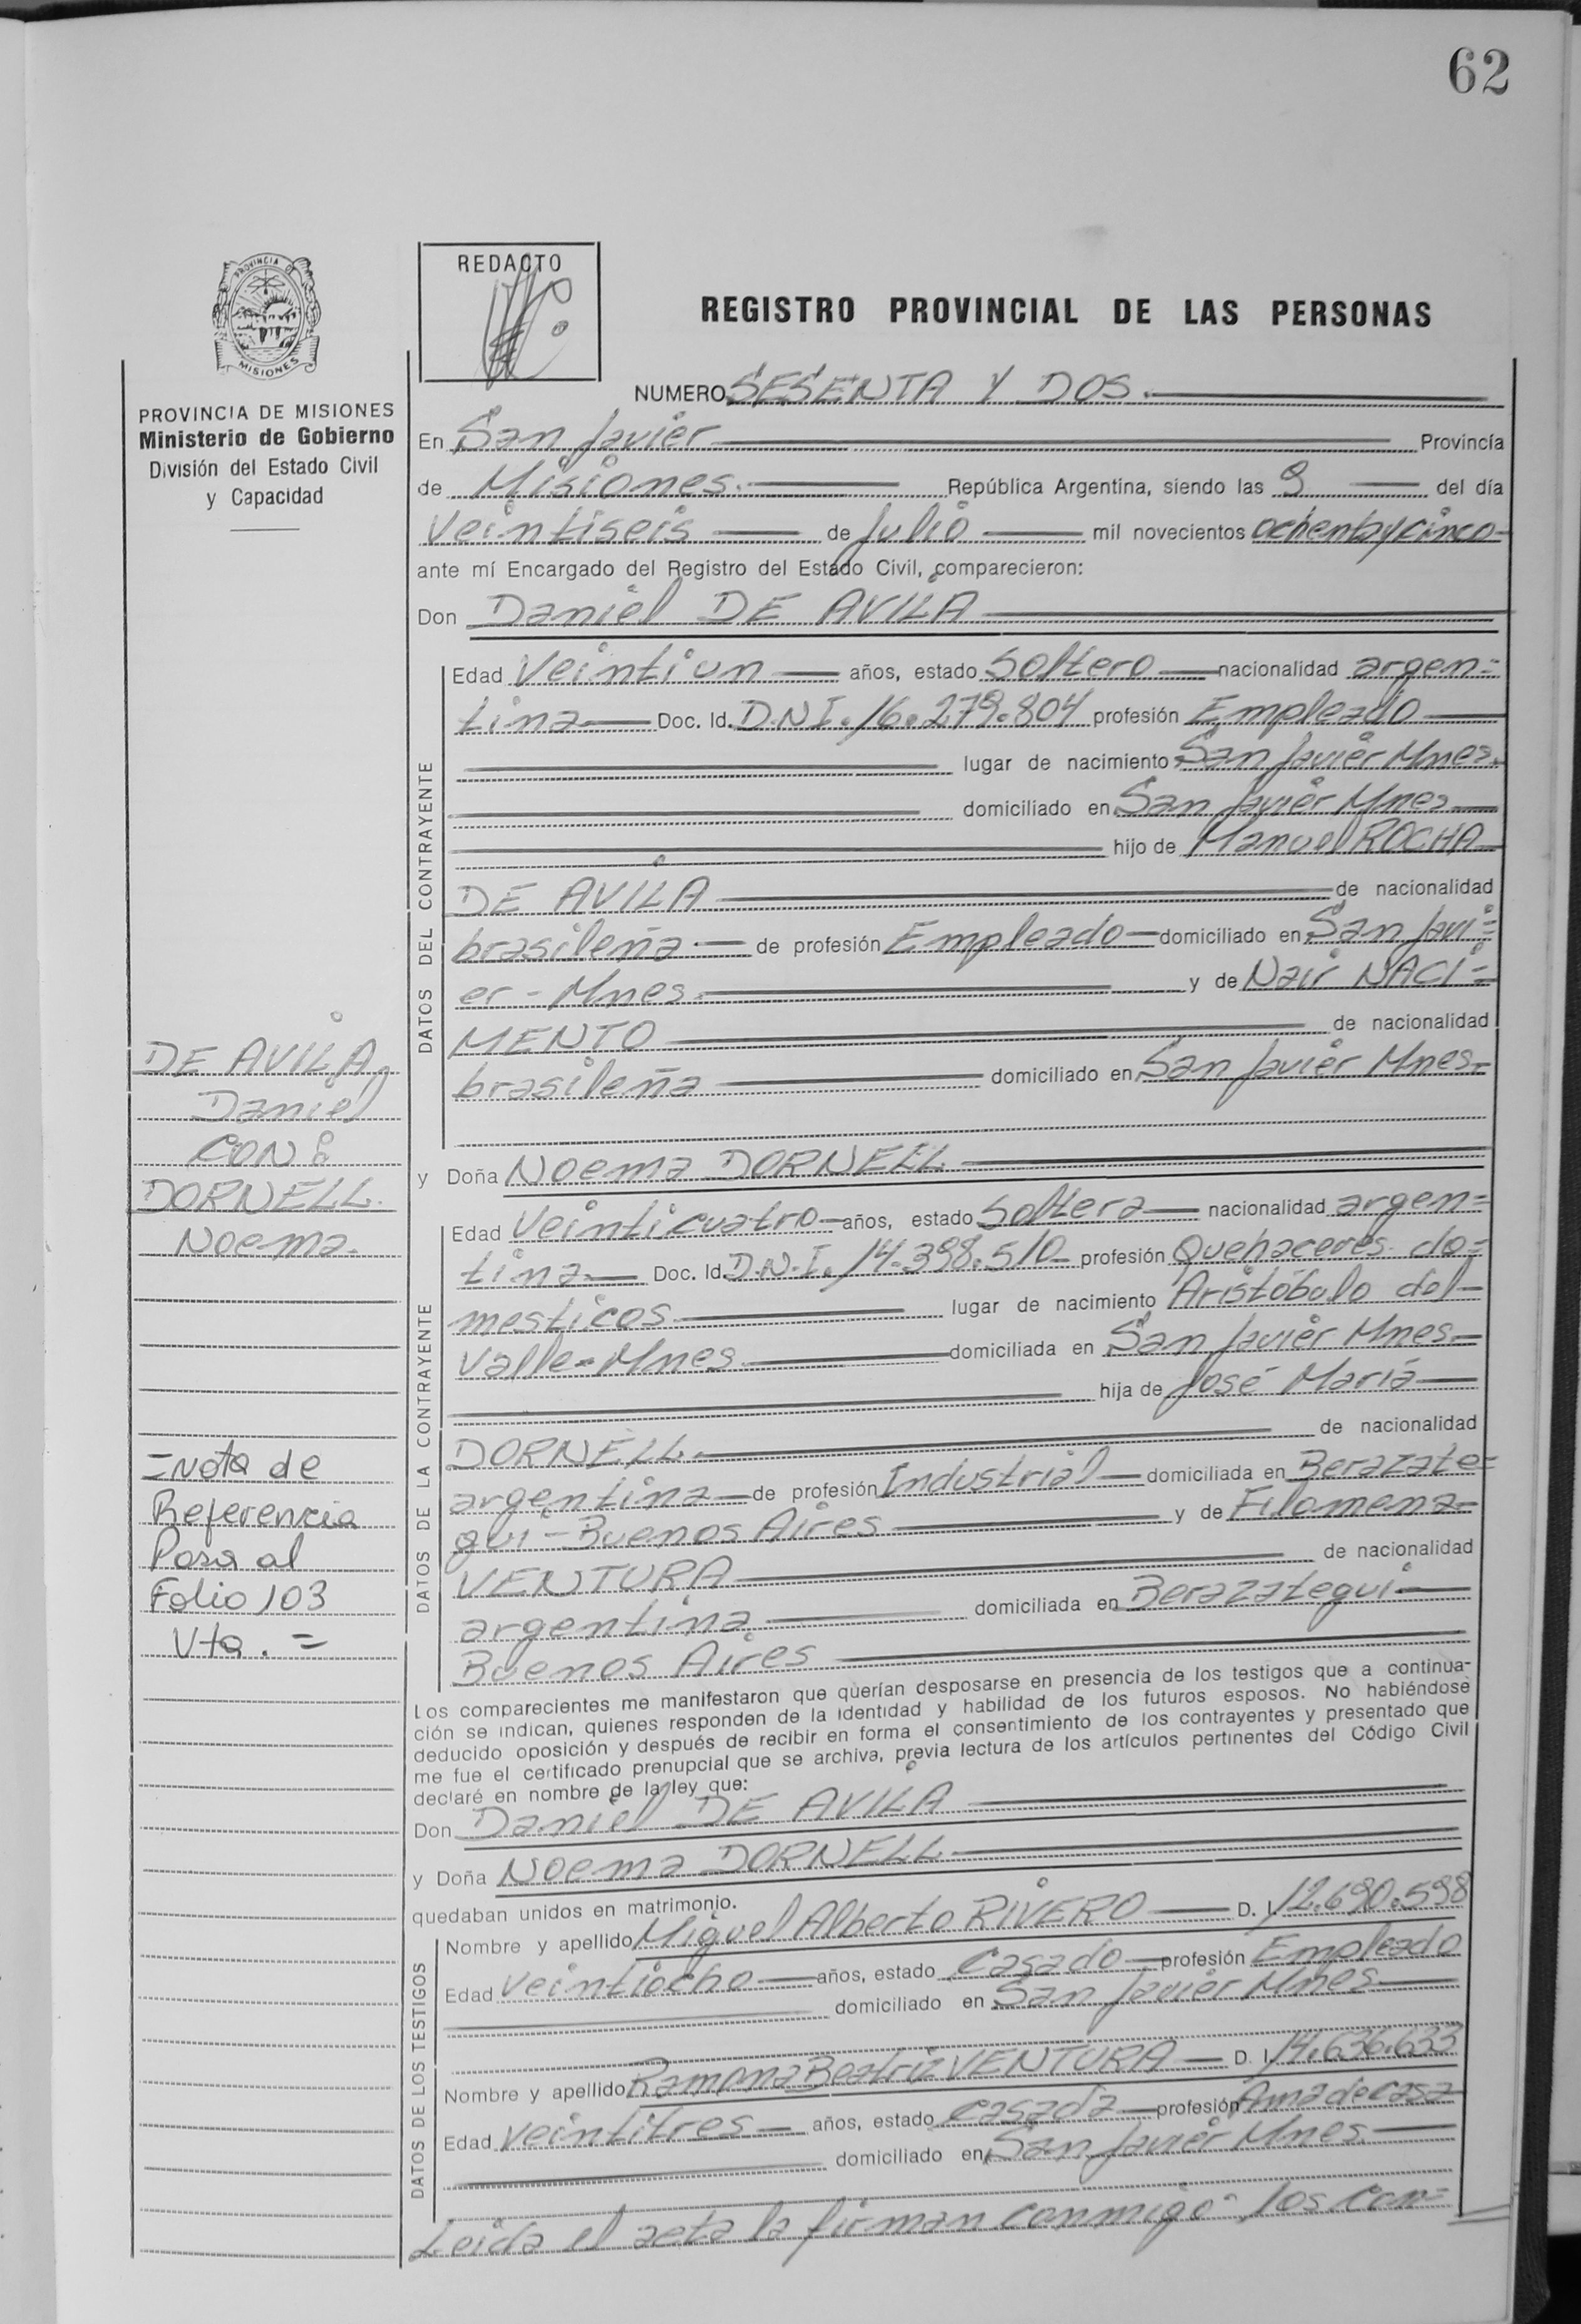 62
PROVINCIA DE
MISIONES
PROVINCIA DE MISIONES
Ministerio de Gobierno
División del Estado Civil
y Capacidad
DE AVILA
Daniel
CON:
DORNELL.
Noema.
=Nota de
Referencia
Pasa al
Folio 103
Vta. =
REDACTO
REGISTRO PROVINCIAL DE LAS PERSONAS
NUMERO SESENTA Y DOS.
En San Javier Provincia
de Misiones. República Argentina, siendo las 9 del día
Veintiseis de Julio mil novecientos ochenta y cinco
ante mí Encargado del Registro del Estado Civil, comparecieron:
Don Daniel DE AVILA
DATOS DEL CONTRAYENTE
Edad Veintiun años, estado Soltero nacionalidad argen=
tina Doc. Id. D.N.I. 16.279.804 profesión Empleado
lugar de nacimiento San Javier Mnes.
domiciliado en San Javier Mnes
hijo de Manuel ROCHA
DE AVILA de nacionalidad
brasileña de profesión Empleado domiciliado en San Javi=
er - Mnes. y de Nair NACI=
MENTO de nacionalidad
brasileña domiciliado en San Javier Mnes.
y Doña Noema DORNELL
DATOS DE LA CONTRAYENTE
Edad Veinticuatro años, estado Soltera nacionalidad argen=
tina Doc. Id. D.N.I. 14.398.510 profesión Quehaceres do=
mesticos lugar de nacimiento Aristóbulo del
Valle-Mnes. domiciliada en San Javier Mnes.
hija de José María
DORNELL. de nacionalidad
argentina de profesión Industrial domiciliada en Berazate=
gui - Buenos Aires y de Filomena
VENTURA de nacionalidad
argentina domiciliada en Berazategui
Buenos Aires
Los comparecientes me manifestaron que querían desposarse en presencia de los testigos que a continua-
ción se indican, quienes responden de la identidad y habilidad de los futuros esposos. No habiéndose
deducido oposición y después de recibir en forma el consentimiento de los contrayentes y presentado que
me fue el certificado prenupcial que se archiva, previa lectura de los artículos pertinentes del Código Civil
declaré en nombre de la ley que:
Don Daniel DE AVILA
y Doña Noema DORNELL
quedaban unidos en matrimonio.
DATOS DE LOS TESTIGOS
Nombre y apellido Miguel Alberto RIVERO D. I. 12.690.598
Edad Veintiocho años, estado Casado profesión Empleado
domiciliado en San Javier Mnes
Nombre y apellido Ramona Beatriz VENTURA D. I. 14.636.633
Edad Veintitres años, estado Casada profesión Ama de casa
domiciliado en San Javier Mnes.
Leida el acta la firman conmigo los con=